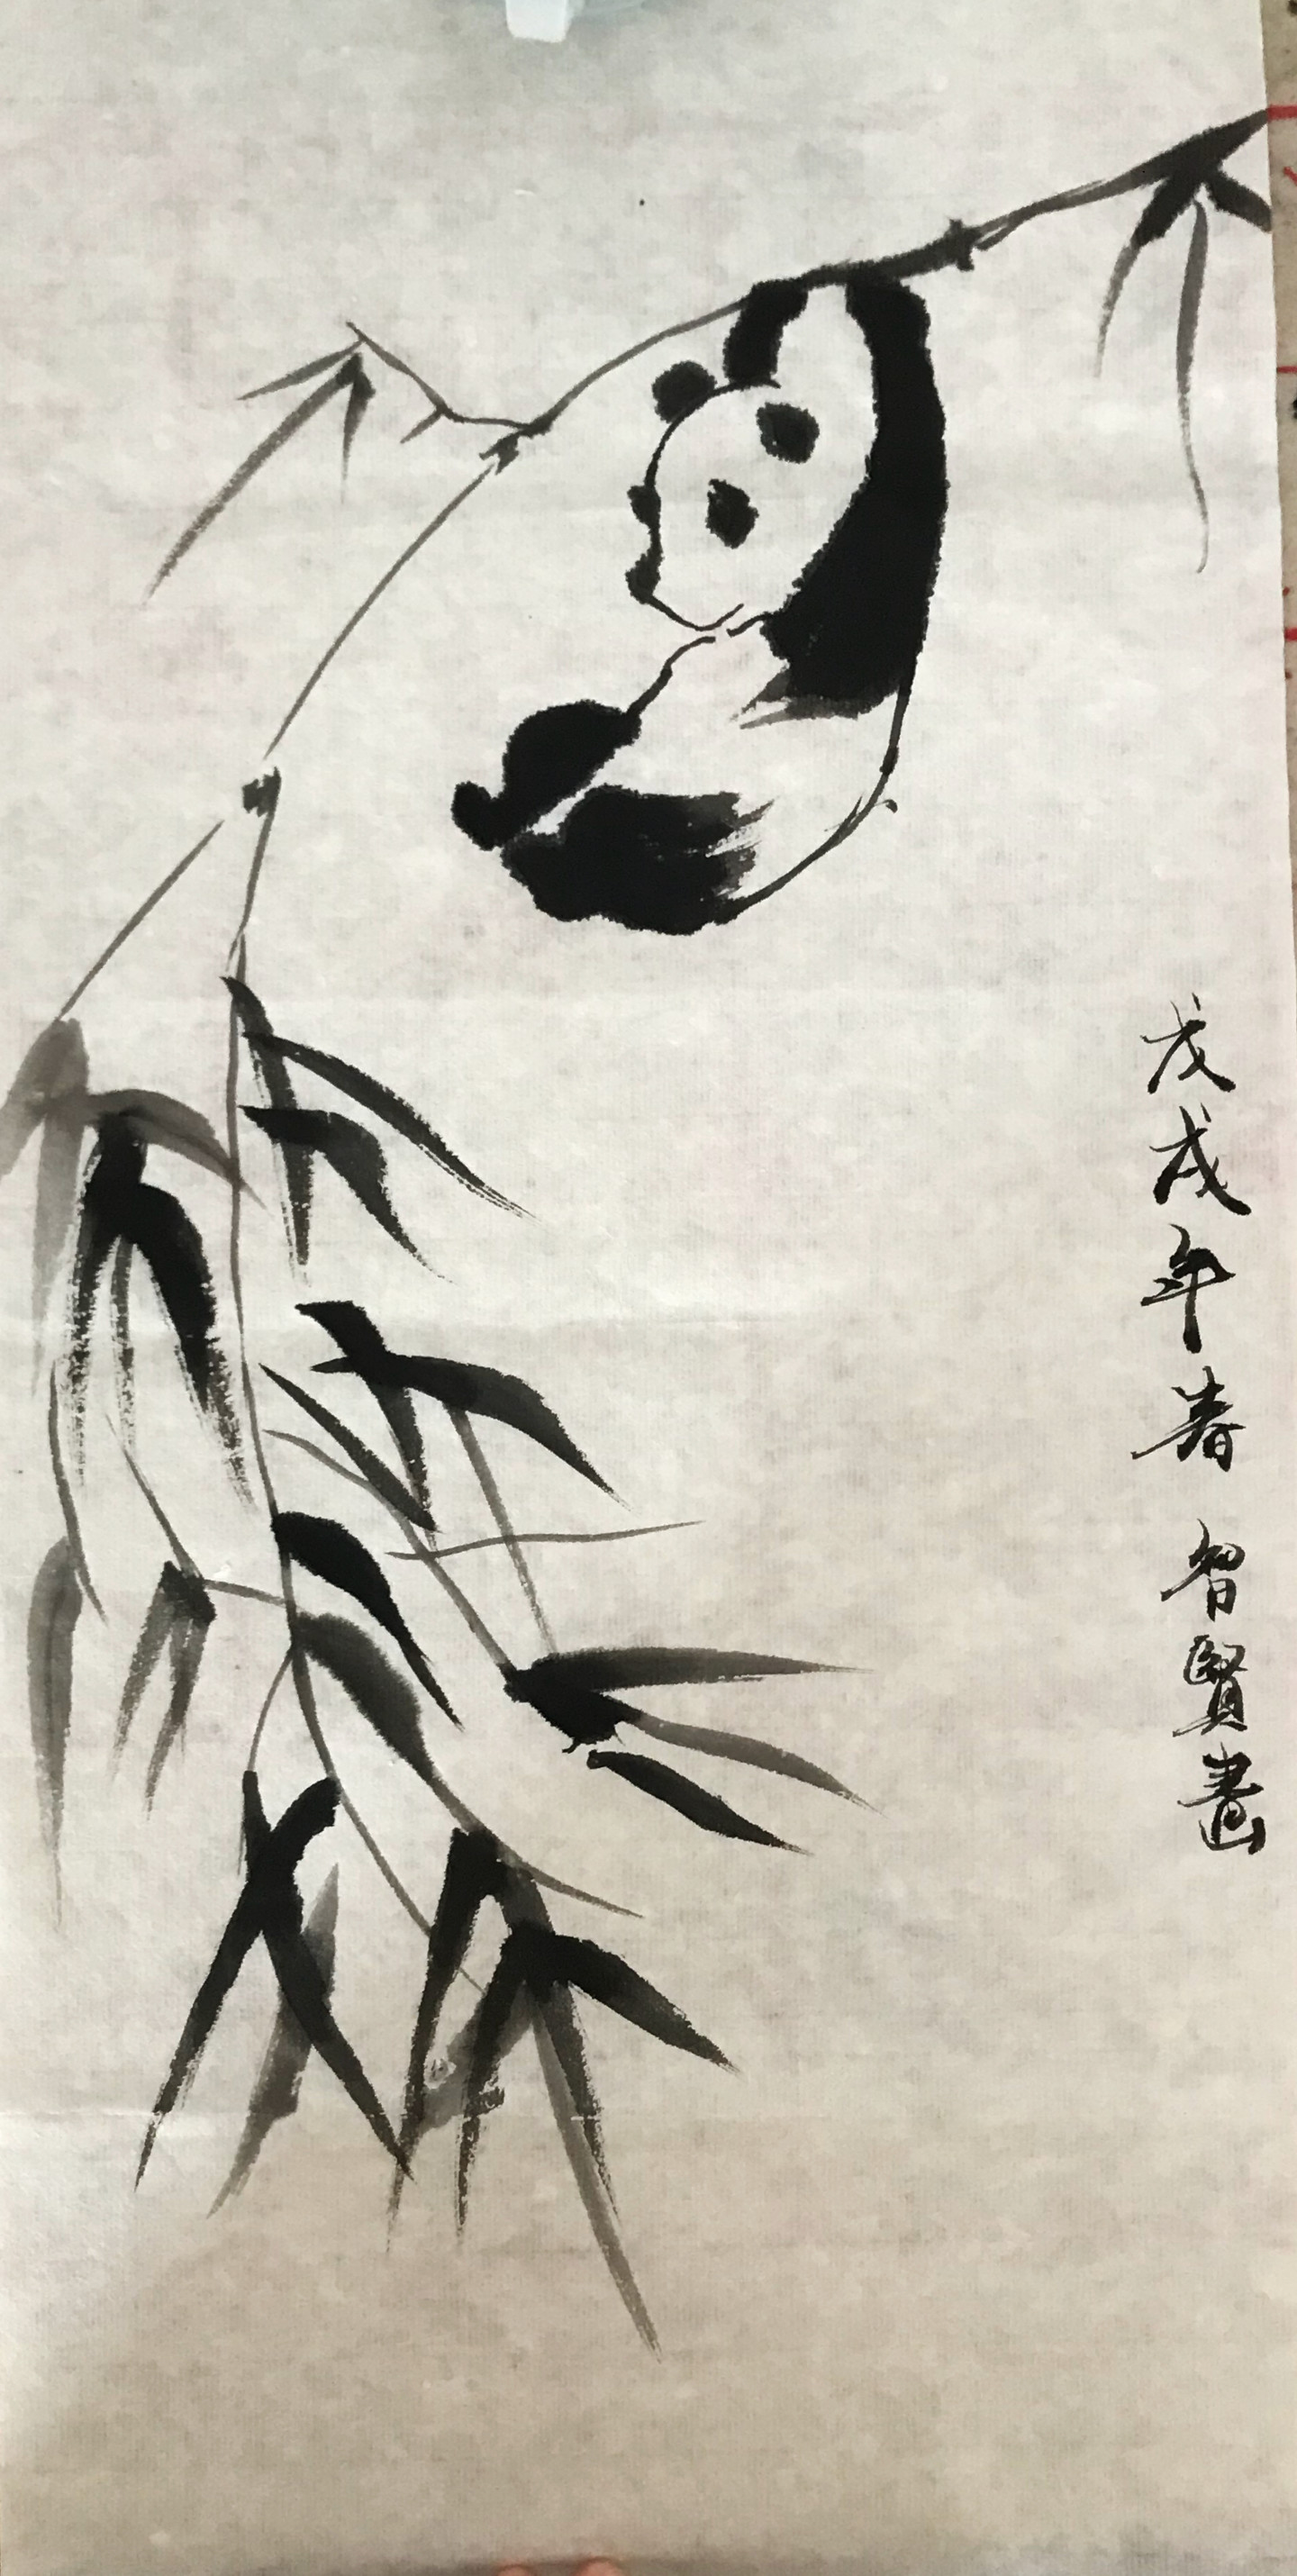 戊戌年春智賢畫